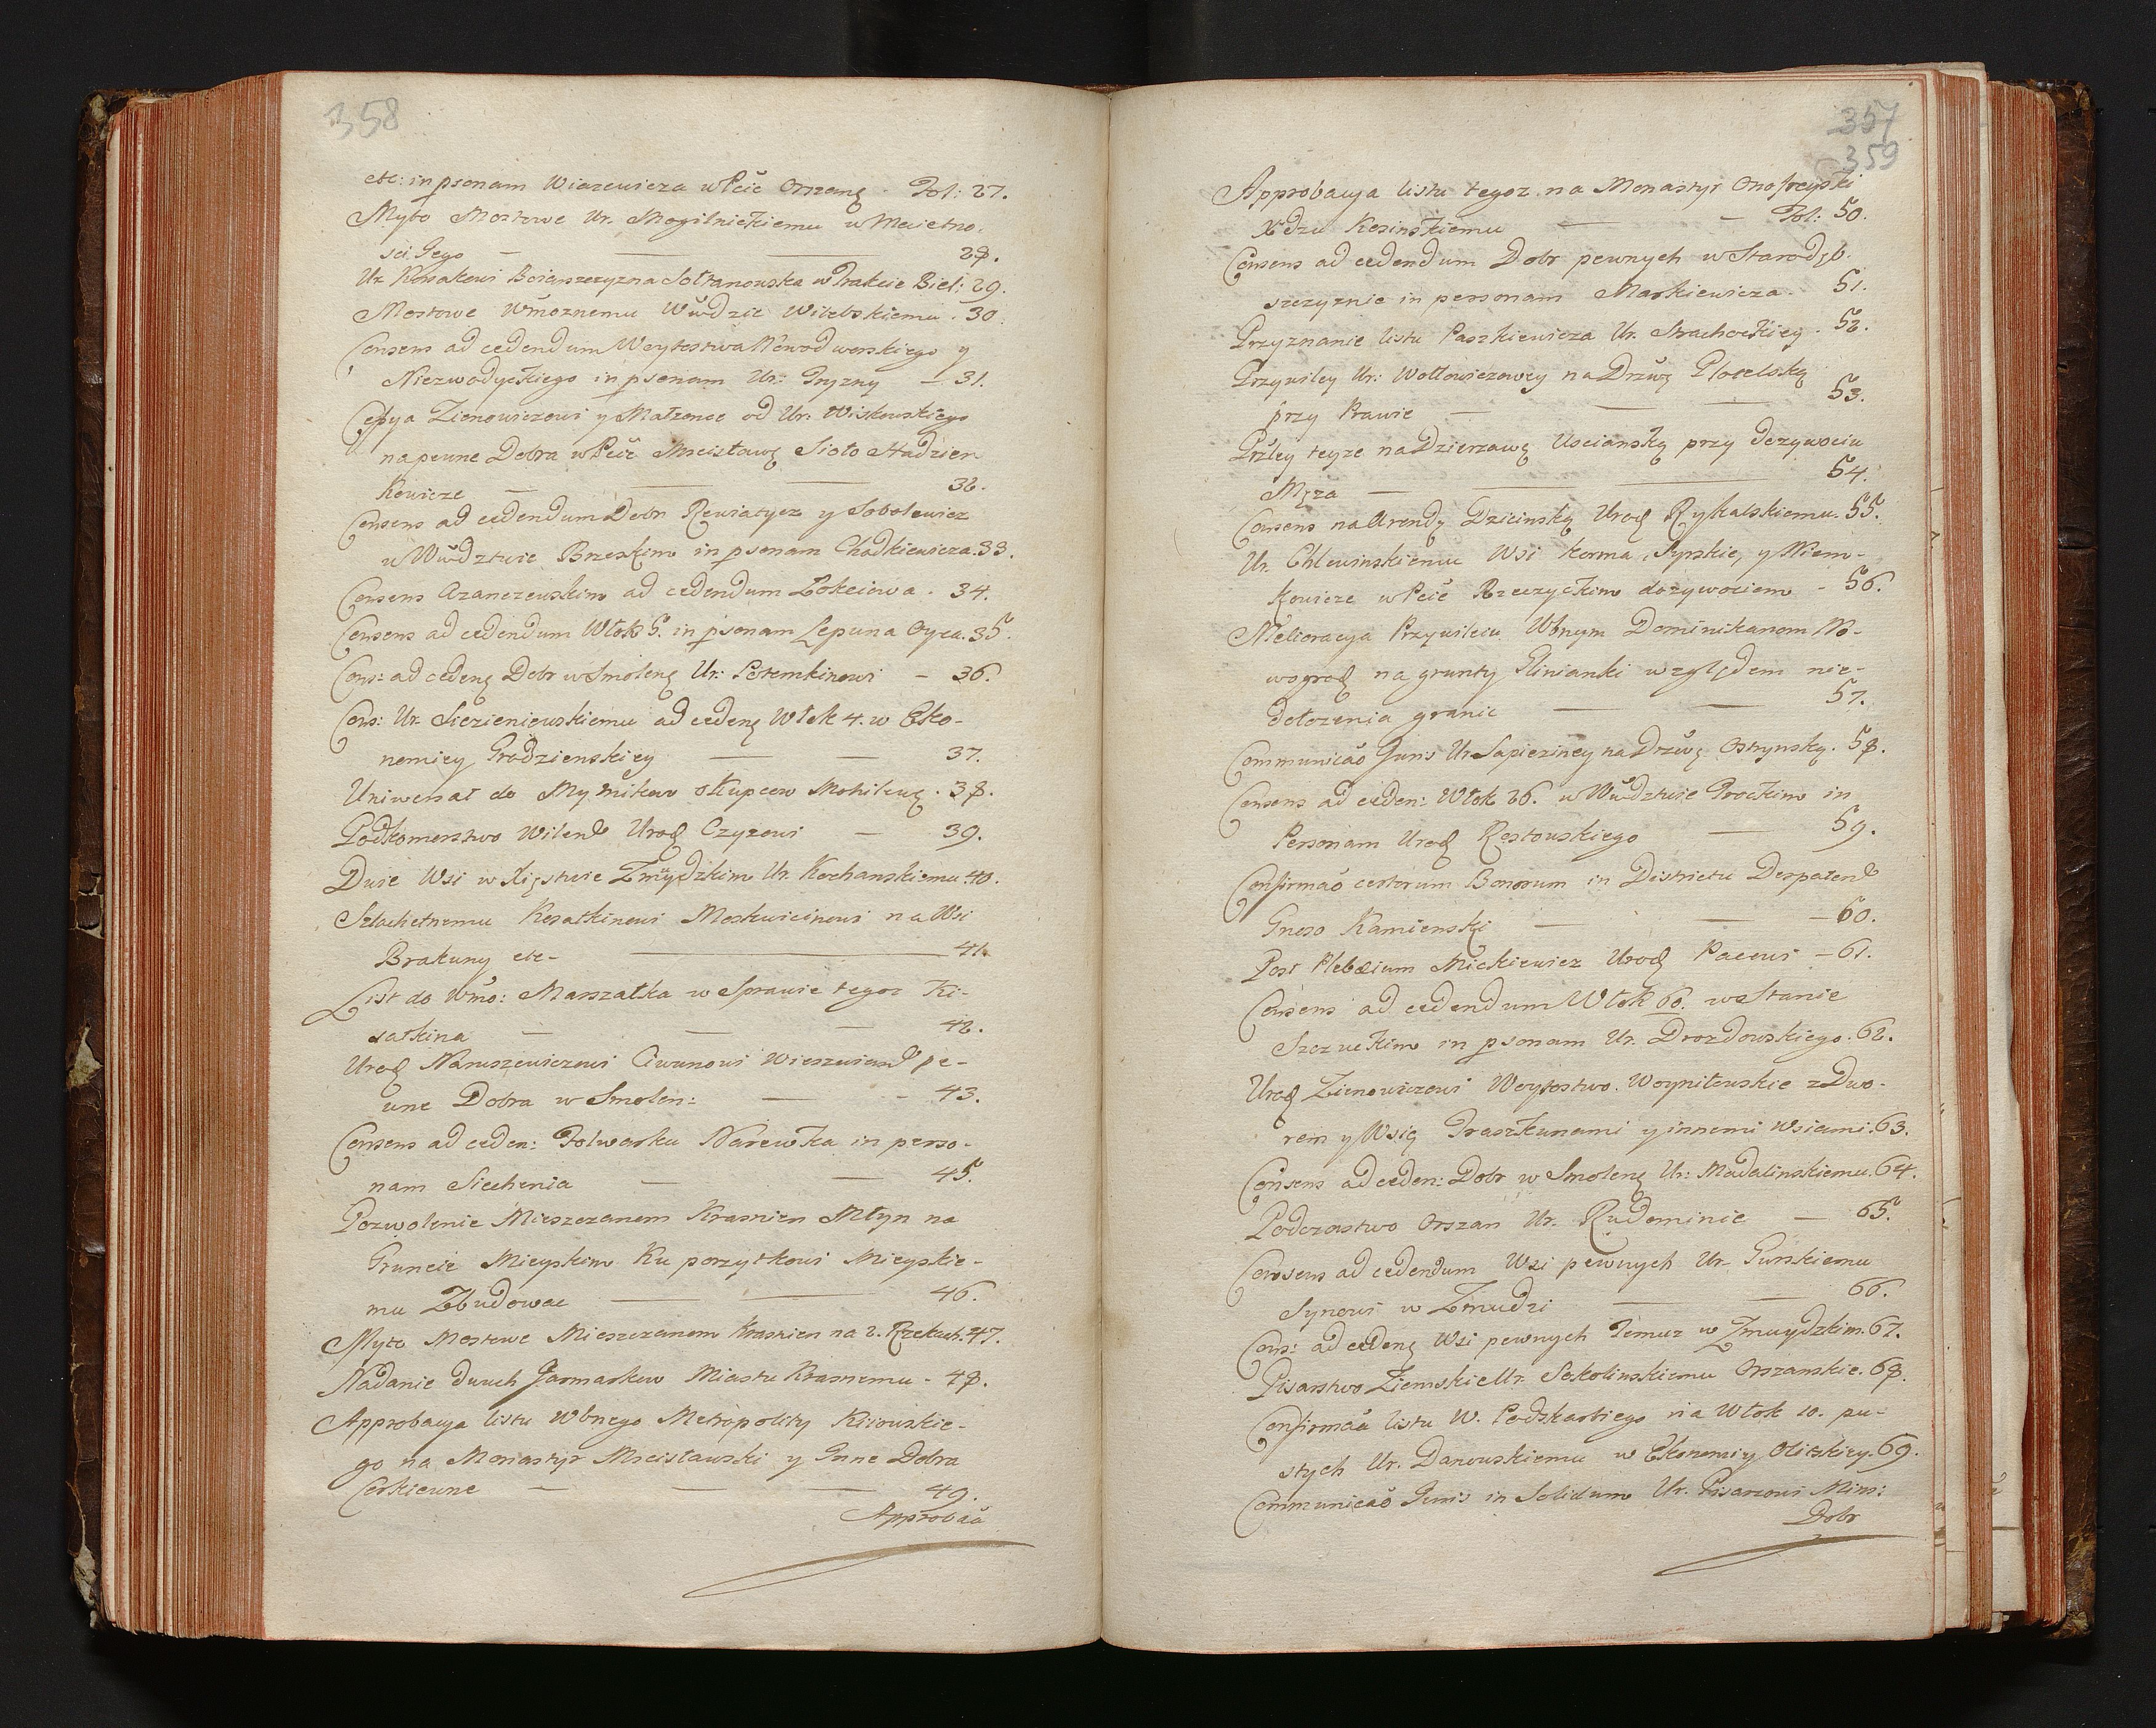 358
etc: in psonam Wiazewicza w Pcie Orszanę. Fol: 27.
Myto Mostowe Ur. Mogilnickiemu w Maietno.
sci Jego — 28.
Ur. Kossakowi Boiarszczyzna Sołtanowska w Trakcie Biel: 29.
Mostowe Wmoznemu Wwdzie Witebskiemu. 30.
Consens ad cedendum Woytostwa Nowodworskiego y
Niezwodyckiego in psonam Ur: Gryzny — 31.
Cessya Zienowiczowi y Małzonce od Ur. Wiskowskiego
na pewne Dobra w Pcie Mscisławę Sioło Hadzien
kowicze — 32.
Consens ad cedendum Dobr Rewiatycz y Sobolewicz
w Wwdztwie Brzeskim in psonam Chodkiewicza. 33.
Consens Azanczewskim ad cedendum Łokciowa. 34.
Consens ad cedendum Włok 5. in psonam Lepuna Oyca. 35.
Cons: ad cedenę Dobr w Smolenę Ur: Potemkinowi — 36.
Cons: Ur. Siezieniewskiemu ad cedenę Włok 4. w Eko-
nomiey Grodzienskiey — 37.
Uniwersał do Mytnikow o Kupcow Mohilewę. 38.
Podkomorstwo Wilen Urod Czyzowi — 39.
Dwie Wsi w Xięstwie Zmuydzkim Ur. Kochanskiemu. 40.
Szlachetnemu Kosatkinowi Moskwicinowi na Wsi
Brakuny etc- 41.
List do Wmo: Marszałka w Sprawie tegoz Ki-
satkina — 42.
Urod Naruszewiczowi Ciwunowi Wieszwian pe-
wne Dobra w Smolen: — 43.
Consens ad ceden: Folwarku Narewka in perso-
nam Siechenia — 45.
Pozwolenie Mieszczanom Krasnien Młyn na
Gruncie Mieyskim Ku pozytkowi Mieyskie-
mu Zbudowac — 46.
Myto Mostowe Mieszczanom Krasnien na 2. Rzekach. 47.
Nadanie dwuch Jarmarkow Miastu Krasnemu - 48.
Approbacya listu Wbnego Metropolity Kiiowskie-
go na Monastyr Mscisławski y Inne Dobra
Cerkiewne — 49.
Approbaã
357
359
Approbacya listu tegoz na Monastyr Onofreyski
Xdzu Kosinskiemu — Fol: 50.
Consens ad cedendum Dobr pewnych w Starodęb.
szczyznie in personam Markiewicza. 51.
Przyznanie listu Paszkiewicza Ur. Strachockieg. 52.
Przywiley Ur: Wołłowiczowey na Drzwę Płotelską
przy Prawie — 53.
Przley teyze na Dzierzawę Usciańską przy dozywociu
Męza — 54.
Consens na Arendę Dzicinską Urod Rykalskiemu. 55.
Ur. Chlewinskiemu Wsi Korma, Syrskie, y Niem-
kowicze w Pcie Rzeczyckim dozywociem - 56.
Melioracya Przywileiu Wbnym Dominikanom No-
wogrod na grunty Glinianki względem nie-
dołozenia granic — 57.
Communicao Juris Ur Sapiezincy na Drzwę Ostrynską. 58.
Consens ad ceden: Włok 26. w Wwdztwie Trockim in
Personam Urod Rostowskiego — 59.
Confirmao certorum Bonorum in Districtu Derpaten
Gneso Kamienski — 60.
Post Plebeium Mickiewicz Urod Pacowi — 61.
Consens ad cedendum Włok 60. w Stanie
Szczuckim in psonam Ur. Drozdowskiego. 62.
Urod Zienowiczowi Woytostwo Woyniłowskie z Dwo-
rem y Wsią Traszkunami y innemi Wsiami. 63.
Consens ad ceden: Dobr w Smolenę Ur: Madalinskiemu. 64.
Podczastwo Orszan Ur. Rudominie — 65.
Consens ad cedendum Wsi pewnych Ur. Gurskiemu
Synowi w Zmudzi — 66.
Cons: ad cedenę Wsi pewnych Temuz w Zmuydzkim. 67.
Pisarstwo Ziemskie Ur. Sokolinskiemu Orszanskie. 68.
Confirmaã listu W. Podskarbiego na Włok 10. pu-
stych Ur. Danowskiemu w Ekonomiy Olitskiey. 69.
Communicao Juris in Solidum Ur. Pisarzowi Mins:
Dobr